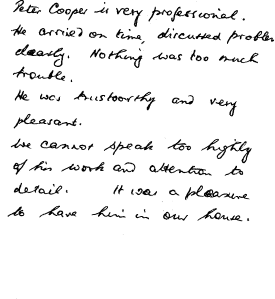 Peter Cooper is very professional.
He arrived on time, discussed problem
clearly. Nothing was too much
trouble.
He was trustworthy and very
pleasant.
We cannot speak too highly
of his work and attention to
detail. It was a pleasure
to have him in our house.